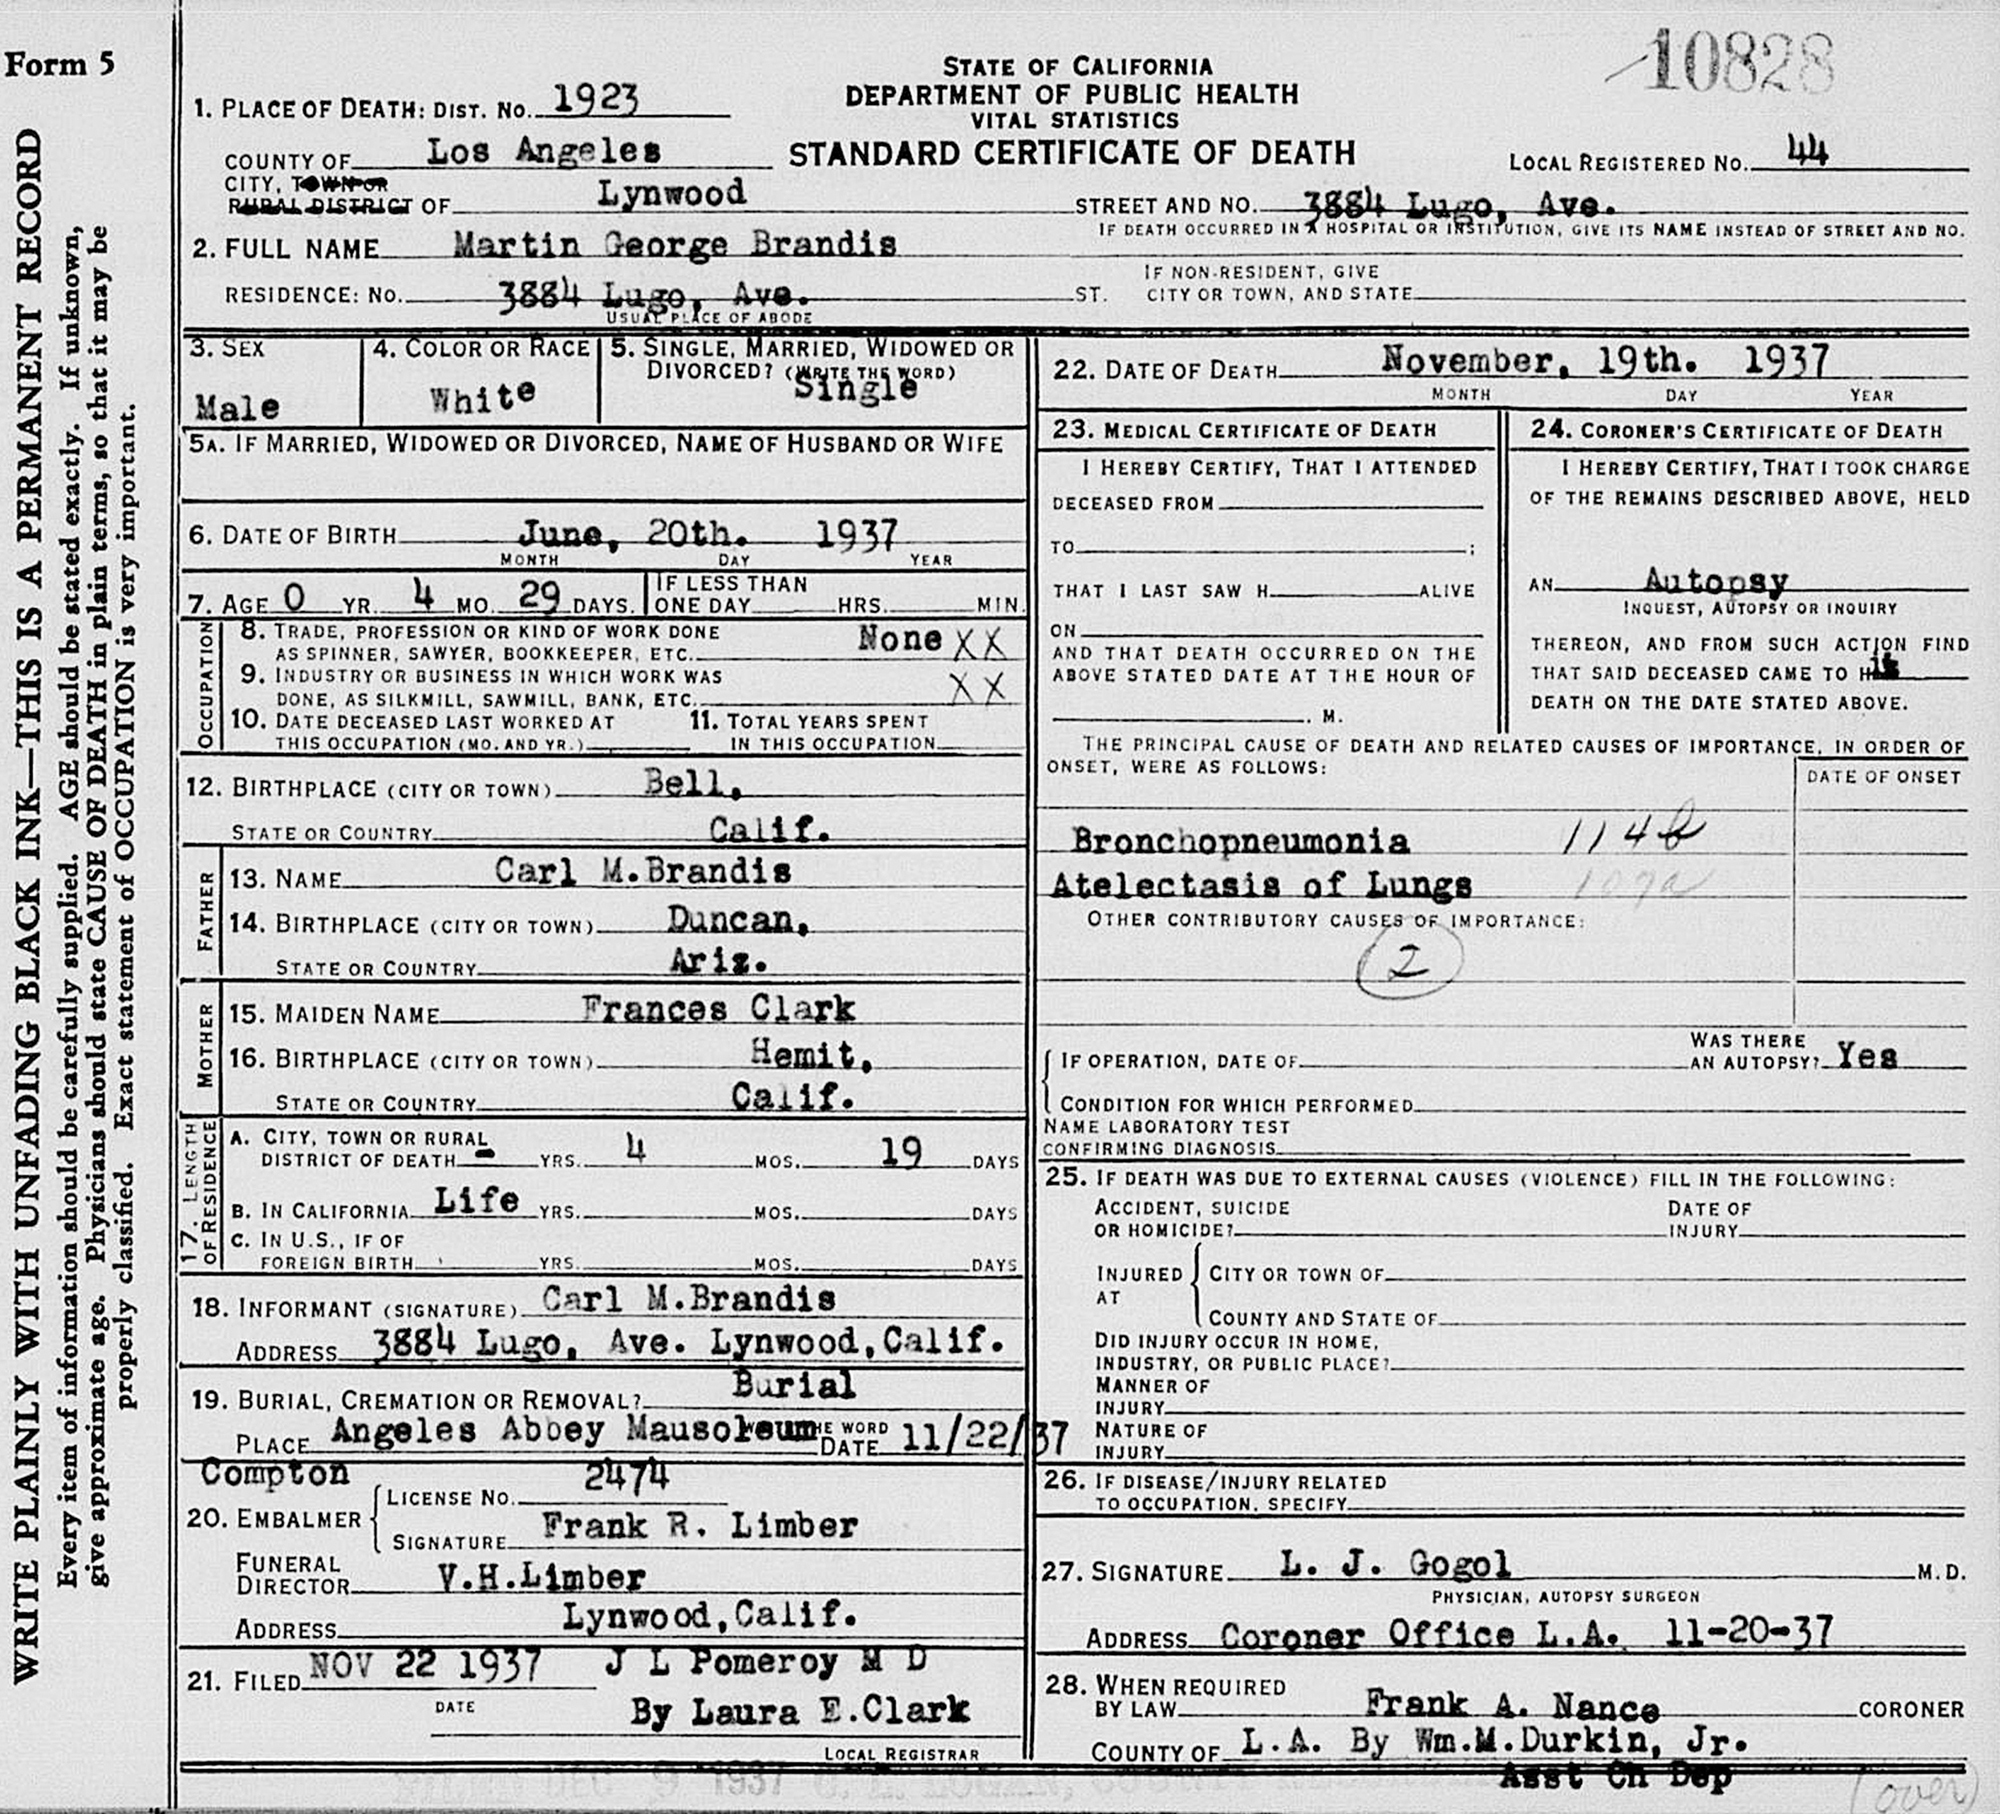 Form 5
WRITE PLAINLY WITH UNFADING BLACK INK—THIS IS A PERMANENT RECORD
Every item of information should be carefully supplied. AGE should be stated exactly. If unknown,
give approximate age. Physicians should state CAUSE OF DEATH in plain terms, so that it may be
properly classified. Exact statement of OCCUPATION is very important.
10828
STATE OF CALIFORNIA
DEPARTMENT OF PUBLIC HEALTH
VITAL STATISTICS
STANDARD CERTIFICATE OF DEATH
1. PLACE OF DEATH: DIST. NO. 1923
COUNTY OF Los Angeles
LOCAL REGISTERED NO. 44
CITY, TOWN OR
RURAL DISTRICT OF Lynwood
STREET AND NO. 3884 Lugo, Ave.
IF DEATH OCCURRED IN A HOSPITAL OR INSTITUTION, GIVE ITS NAME INSTEAD OF STREET AND NO.
2. FULL NAME Martin George Brandis
RESIDENCE: NO. 3884 Lugo, Ave. ST.
USUAL PLACE OF ABODE
IF NON-RESIDENT, GIVE
CITY OR TOWN, AND STATE
3. SEX
Male
4. COLOR OR RACE
White
5. SINGLE, MARRIED, WIDOWED OR
DIVORCED? (WRITE THE WORD)
Single
5A. IF MARRIED, WIDOWED OR DIVORCED, NAME OF HUSBAND OR WIFE
6. DATE OF BIRTH June, 20th. 1937
MONTH DAY YEAR
7. AGE 0 YR. 4 MO. 29 DAYS. IF LESS THAN
ONE DAY HRS. MIN.
OCCUPATION
8. TRADE, PROFESSION OR KIND OF WORK DONE
AS SPINNER, SAWYER, BOOKKEEPER, ETC. None XX
9. INDUSTRY OR BUSINESS IN WHICH WORK WAS
DONE, AS SILKMILL, SAWMILL, BANK, ETC. XX
10. DATE DECEASED LAST WORKED AT
THIS OCCUPATION (MO. AND YR.)
11. TOTAL YEARS SPENT
IN THIS OCCUPATION
12. BIRTHPLACE (CITY OR TOWN) Bell,
STATE OR COUNTRY Calif.
FATHER
13. NAME Carl M.Brandis
14. BIRTHPLACE (CITY OR TOWN) Duncan,
STATE OR COUNTRY Ariz.
MOTHER
15. MAIDEN NAME Frances Clark
16. BIRTHPLACE (CITY OR TOWN) Hemit,
STATE OR COUNTRY Calif.
17. LENGTH
OF RESIDENCE
A. CITY, TOWN OR RURAL
DISTRICT OF DEATH - YRS. 4 MOS. 19 DAYS
B. IN CALIFORNIA Life YRS. MOS. DAYS
C. IN U.S., IF OF
FOREIGN BIRTH YRS. MOS. DAYS
18. INFORMANT (SIGNATURE) Carl M.Brandis
ADDRESS 3884 Lugo, Ave. Lynwood,Calif.
19. BURIAL, CREMATION OR REMOVAL? Burial
PLACE Angeles Abbey Mausoleum HE WORD
DATE 11/22/37
Compton
20. EMBALMER
LICENSE NO. 2474
SIGNATURE Frank R. Limber
FUNERAL
DIRECTOR V.H.Limber
ADDRESS Lynwood,Calif.
21. FILED NOV 22 1937 J L Pomeroy M D
DATE
By Laura E.Clark
LOCAL REGISTRAR
22. DATE OF DEATH November, 19th. 1937
MONTH DAY YEAR
23. MEDICAL CERTIFICATE OF DEATH
I HEREBY CERTIFY, THAT I ATTENDED
DECEASED FROM
TO ;
THAT I LAST SAW H ALIVE
ON
AND THAT DEATH OCCURRED ON THE
ABOVE STATED DATE AT THE HOUR OF
. M.
24. CORONER'S CERTIFICATE OF DEATH
I HEREBY CERTIFY, THAT I TOOK CHARGE
OF THE REMAINS DESCRIBED ABOVE, HELD
AN Autopsy
INQUEST, AUTOPSY OR INQUIRY
THEREON, AND FROM SUCH ACTION FIND
THAT SAID DECEASED CAME TO H
DEATH ON THE DATE STATED ABOVE.
THE PRINCIPAL CAUSE OF DEATH AND RELATED CAUSES OF IMPORTANCE, IN ORDER OF
ONSET, WERE AS FOLLOWS:
DATE OF ONSET
Bronchopneumonia
Atelectasis of Lungs 109a
OTHER CONTRIBUTORY CAUSES OF IMPORTANCE:
2
IF OPERATION, DATE OF
WAS THERE
AN AUTOPSY? Yes
CONDITION FOR WHICH PERFORMED
NAME LABORATORY TEST
CONFIRMING DIAGNOSIS
25. IF DEATH WAS DUE TO EXTERNAL CAUSES (VIOLENCE) FILL IN THE FOLLOWING:
ACCIDENT, SUICIDE
OR HOMICIDE?
DATE OF
INJURY
INJURED
AT
CITY OR TOWN OF
COUNTY AND STATE OF
DID INJURY OCCUR IN HOME,
INDUSTRY, OR PUBLIC PLACE?
MANNER OF
INJURY
NATURE OF
INJURY
26. IF DISEASE/INJURY RELATED
TO OCCUPATION, SPECIFY
27. SIGNATURE L. J. Gogol M. D.
PHYSICIAN, AUTOPSY SURGEON
ADDRESS Coroner Office L.A. 11-20-37
28. WHEN REQUIRED
BY LAW Frank A. Nance CORONER
COUNTY OF L.A. By Wm.M.Durkin, Jr.
Asst Ch Dep
(over)